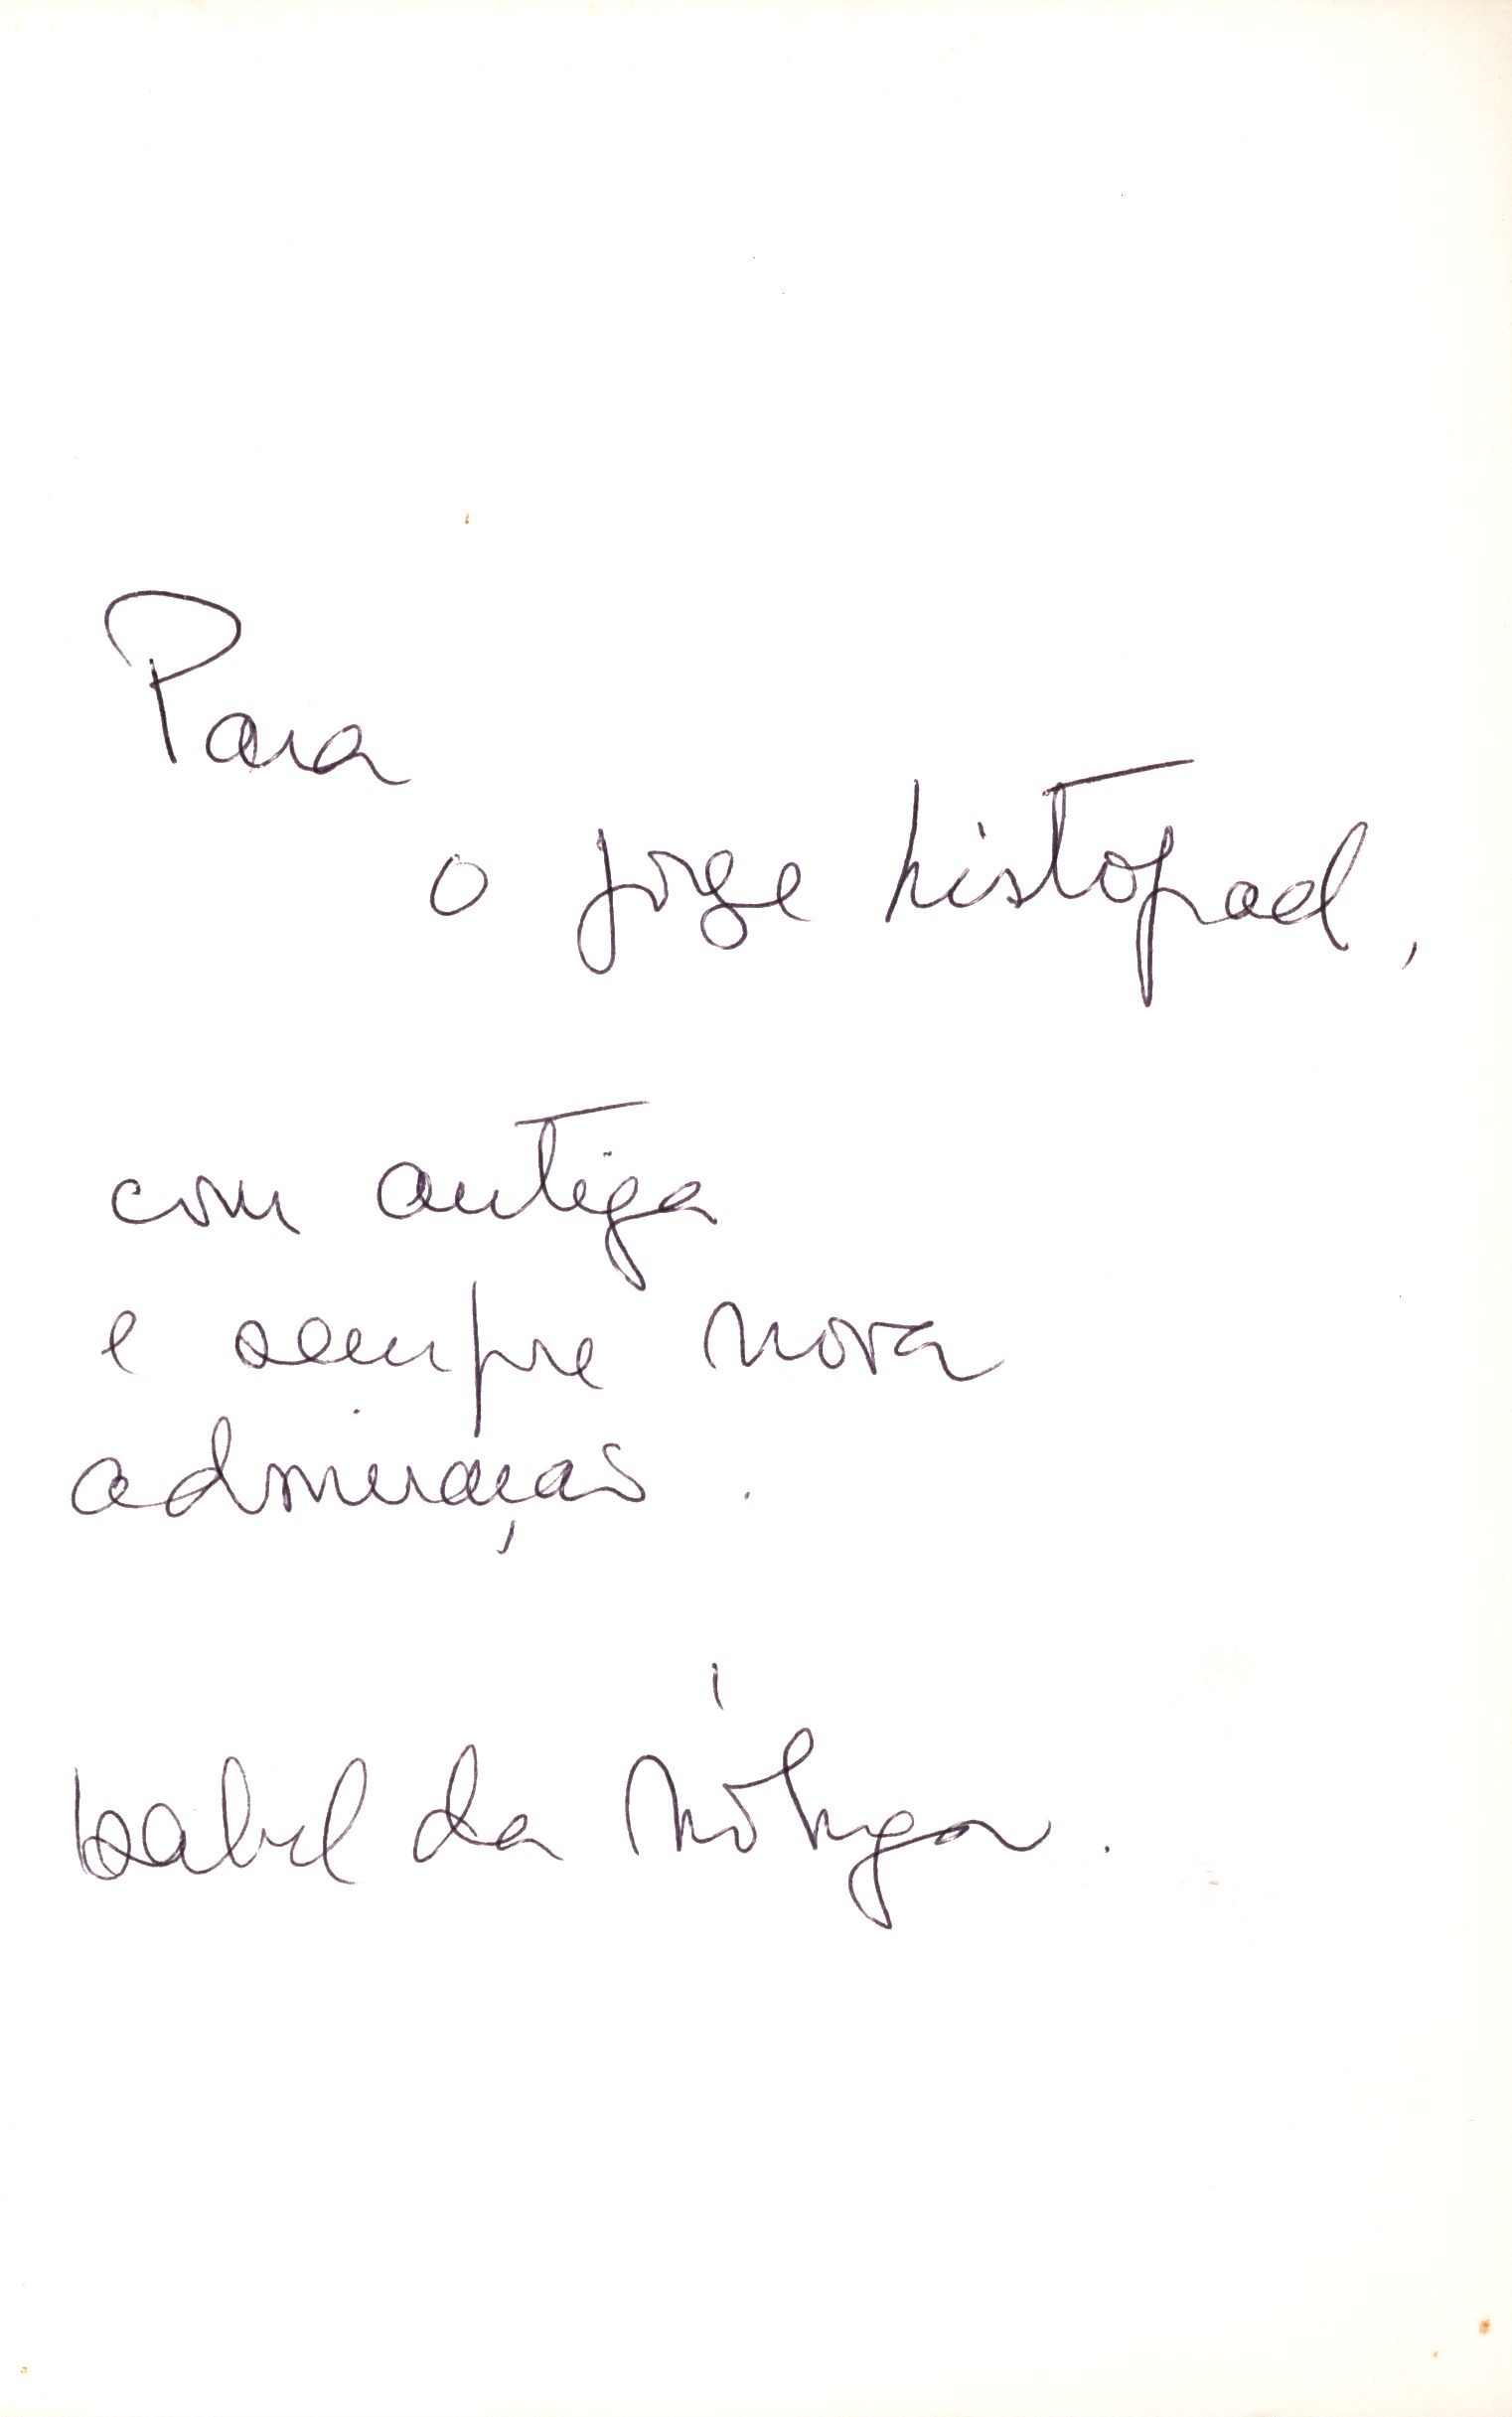 Para
o Jorge Listopad,
com antiga
e sempre nova
admiração.
Isabel da Nóbrega.